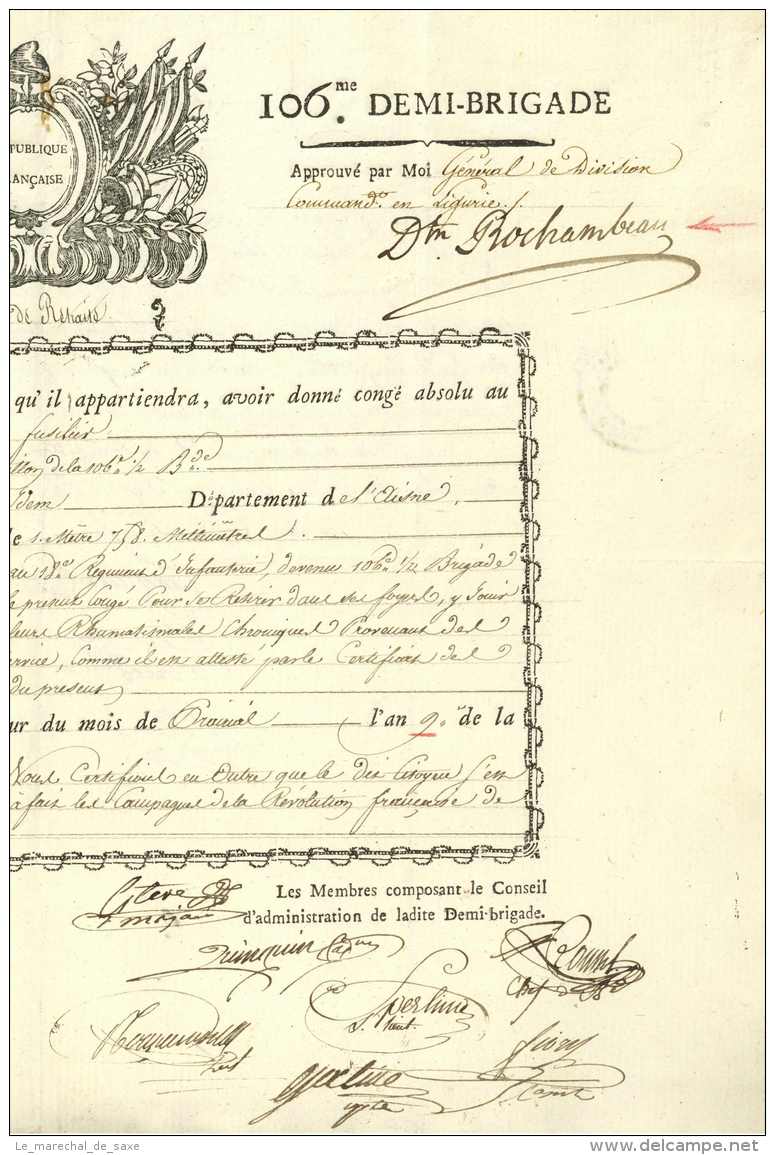 106.me DEMI-BRIGADE
PUBLIQUE
ANÇAISE
Approuvé par Moi Général de Division
Command.t en Ligurie ./.
Dtn Rochambeau
de Retraite
qu'il appartiendra, avoir donné congé absolu au
fusilier
llon de la 106.e 1/2 B.de
Idem Département de l'Aisne,
de 1. Mètre 758. Millimètres.
au 18.e Régiment d'Infanterie, devenu 106.e 1/2 Brigade
le present Congé Pour se Retirer dans ses foyers, y Jouir
leurs Rhumatismales Chroniques Provenant des
ervice, Comme il en atteste par le Certificat des
du present
ur du mois de Prairial l'an 9.e de la
Nous Certifions en Outre que le dit Citoyen s'en
à fait les Campagnes de la Révolution française de
Les Membres composant le Conseil
d'administration de ladite Demi-brigade.
major
Chef de
Sperlino
S. Lieut.
Le_marechal_de_saxe
delcampe.net